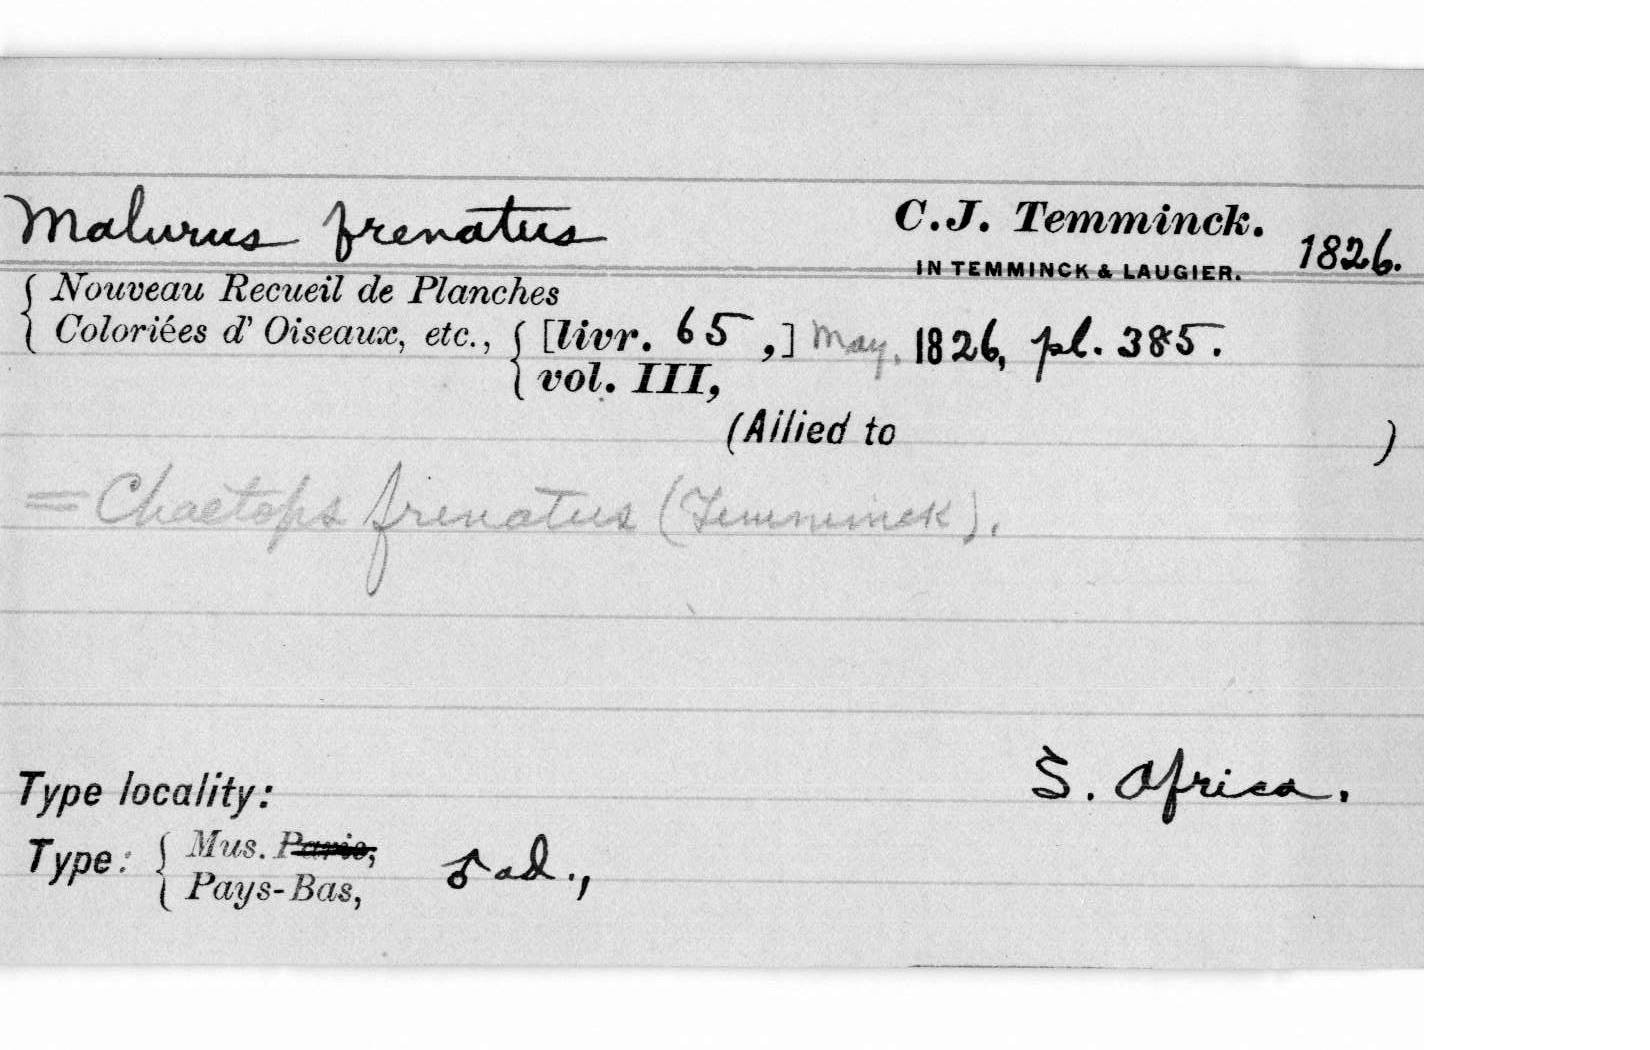 Malurus frenatus C.J. Temminck. 1826.
IN TEMMINCK & LAUGIER.
Nouveau Recueil de Planches
Coloriées d' Oiseaux, etc., [livr. 65,] May, 1826, pl. 385.
vol. III,
(Allied to )
= Chaetops frenatus (Temminck).
Type locality: S. Africa.
Type: Mus. Paris,
Pays-Bas, ♂ ad.,